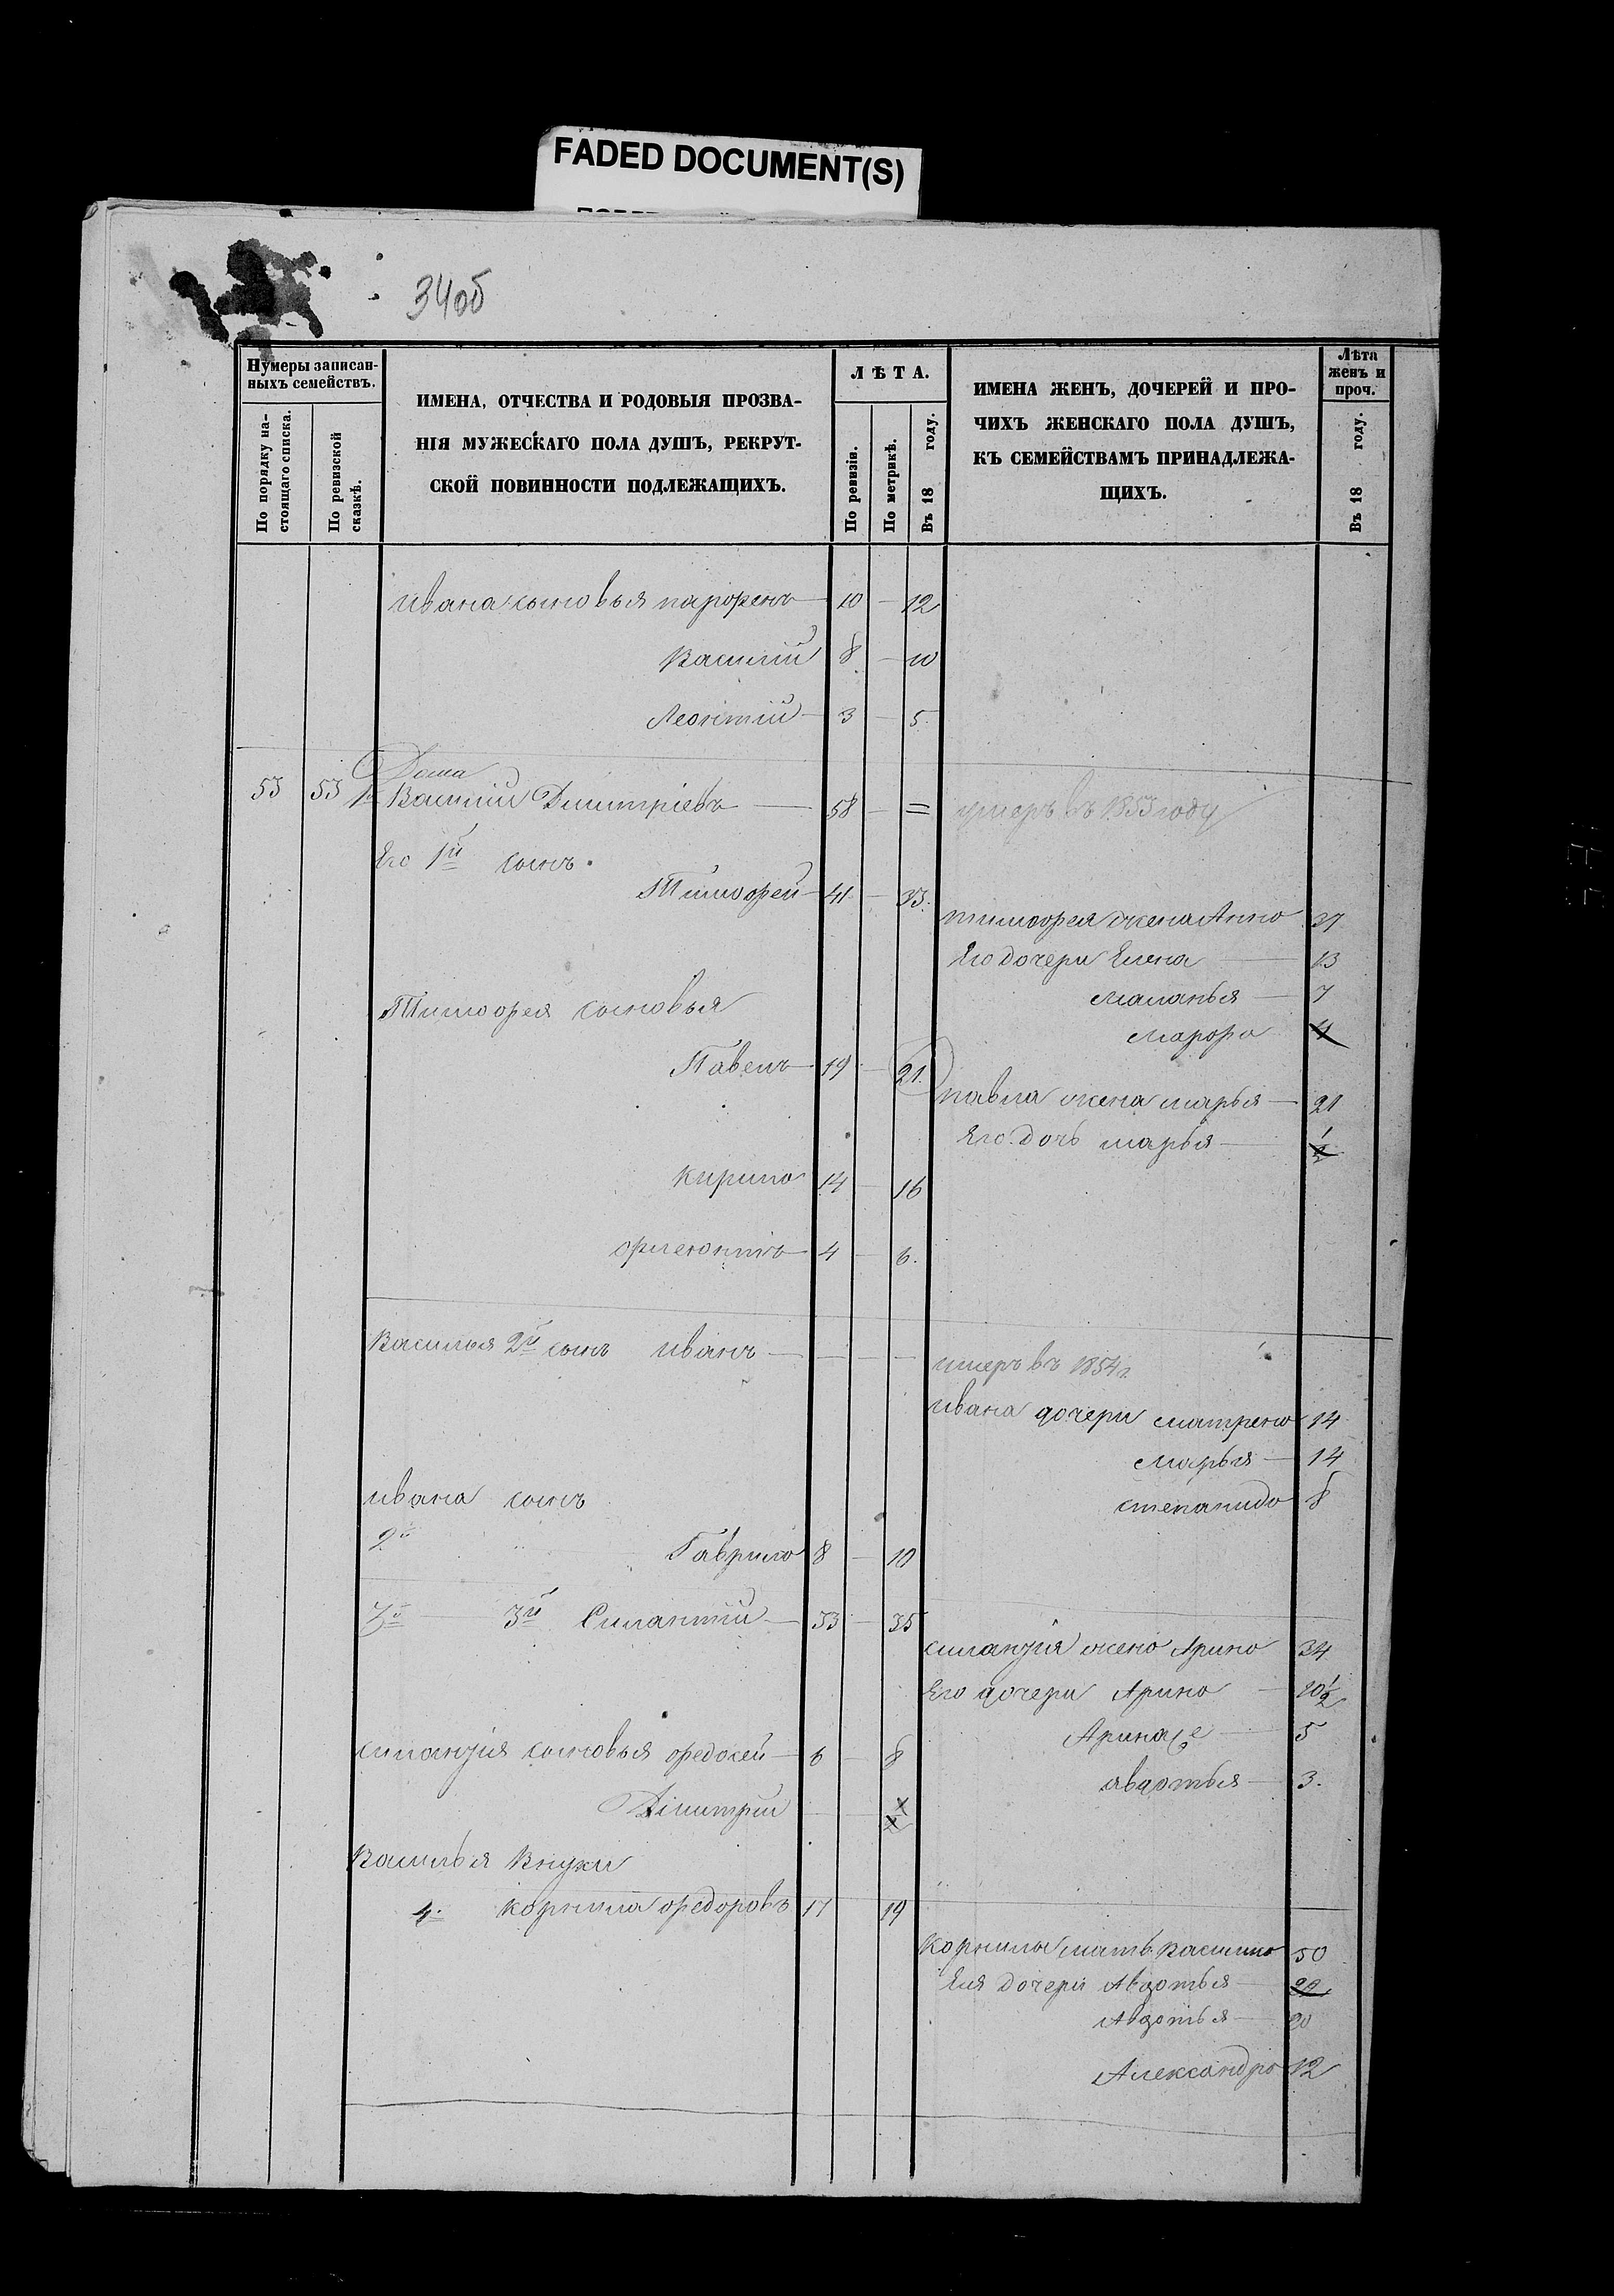 FADED DOCUMENT(S)
34об
Нумеры записан-
ныхъ семействъ.
По порядку на-
стоящаго списка.
По ревизской
сказкѣ.
ИМЕНА, ОТЧЕСТВА И РОДОВЫЯ ПРОЗВА-
НІЯ МУЖЕСКАГО ПОЛА ДУШЪ, РЕКРУТ-
СКОЙ ПОВИННОСТИ ПОДЛЕЖАЩИХЪ.
ЛѢТА.
По ревизіи.
По метрикѣ.
Въ 18 году.
ИМЕНА ЖЕНЪ, ДОЧЕРЕЙ И ПРО-
ЧИХЪ ЖЕНСКАГО ПОЛА ДУШЪ,
КЪ СЕМЕЙСТВАМЪ ПРИНАДЛЕЖА-
ЩИХЪ.
Лѣта
женъ и
проч.
Въ 18 году.
Ивана сыновья парфенъ — 10 — 12
Василій 8 — 10
Леонтій — 3 — 5.
53 53 Василій Дмитріевъ — 58 — = умеръ въ 1853 году
Его 1й сынъ.
Тимофей — 41 — 33.
тимофея жена Анна 37
Его дочери Елена — 13
маланья — 7
Тимофея сыновья
марфа 4
Павелъ — 19 — 21.
павла жена марья — 21
Его дочь марья —
кирила 14 — 16
флегонтъ — 4 — 6.
Василья 2й сынъ иванъ — — —
умеръ въ 1854 г.
ивана дочери матрена 14
марья — 14
ивана сынъ
степанида 8
2й Гаврила 8 — 10
3й — 3й Силантій — 33 — 35
силантія жена Арина 34
Его дочери Арина — 10 1/2
Арина же — 5
силантія сыновья федосей — 6 — 8
авдотья — 3.
Дімитрій
Василья Внуки
4. корнила федоровъ 17 19
корнилы мать василиса 50
Ея дочери Авдотья — 20
Авдотья — 20
Александра 12